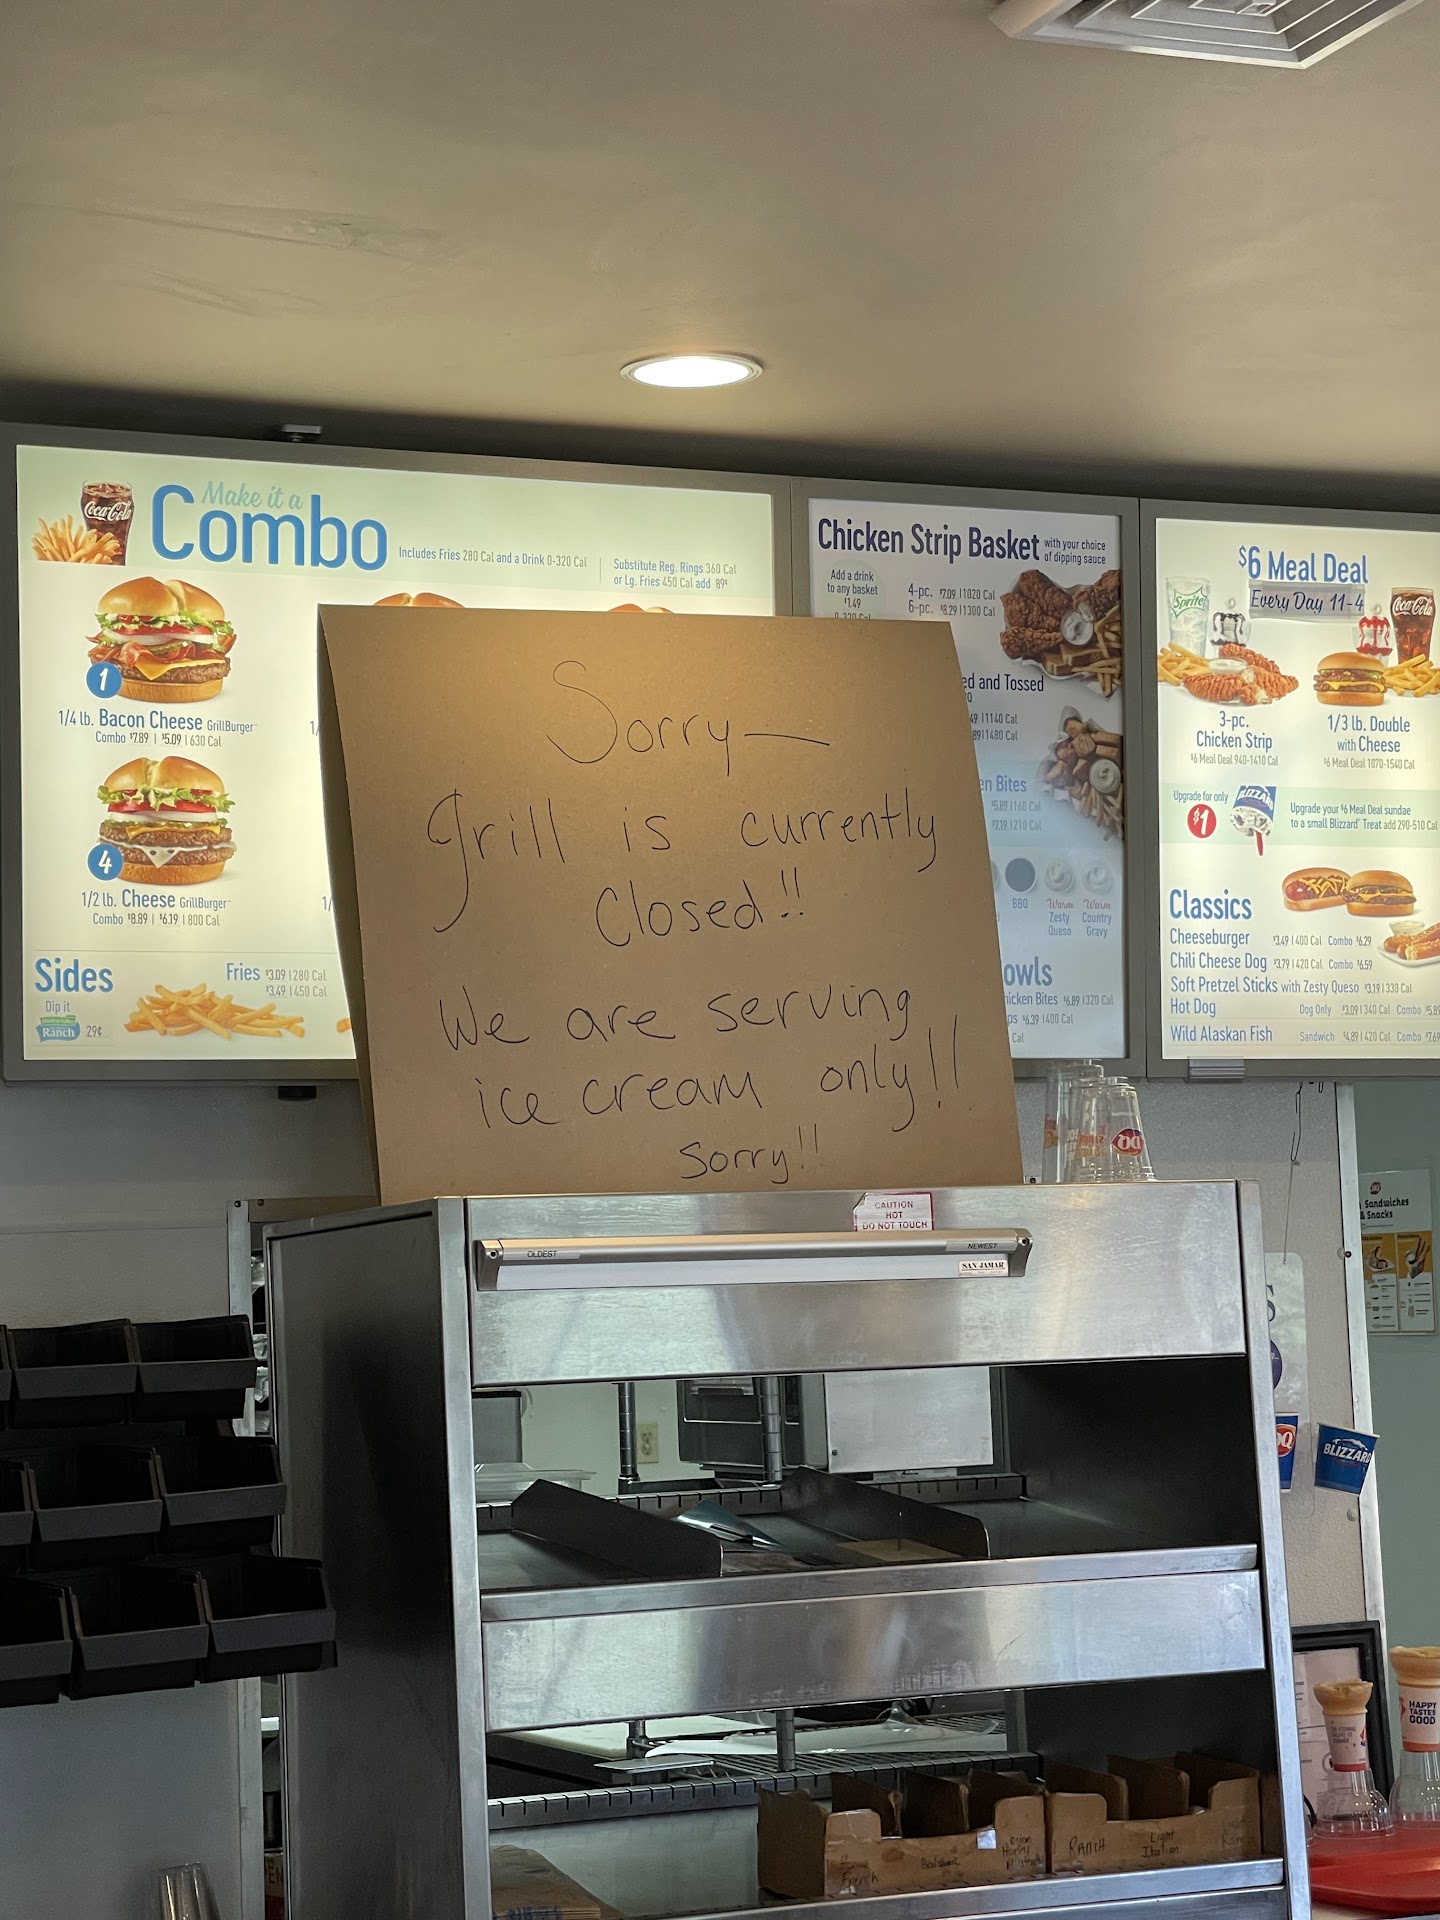 Make it a
Combo
Includes Fries 280 Cal and a Drink 0-320 Cal
Substitute Reg. Rings 360 Cal
or Lg. Fries 450 Cal add 89¢
Coca-Cola
1
1/4 lb. Bacon Cheese GrillBurger™
Combo $7.89 | $5.09 | 630 Cal
4
1/2 lb. Cheese GrillBurger™
Combo $8.89 | $6.19 | 800 Cal
Sides
Dip it
Ranch 29¢
Fries $3.09 | 280 Cal
$3.49 | 450 Cal
Chicken Strip Basket with your choice
of dipping sauce
Add a drink
to any basket
$1.49
4-pc. $7.09 | 1020 Cal
6-pc. $8.29 | 1300 Cal
ed and Tossed
49 | 1140 Cal
89 | 1480 Cal
en Bites
$5.89 | 160 Cal
$7.19 | 210 Cal
BBQ
Warm
Zesty
Queso
Warm
Country
Gravy
owls
hicken Bites $6.89 | 320 Cal
ps $6.39 | 400 Cal
Cal
$6 Meal Deal
Every Day 11-4
Sprite
Coca-Cola
3-pc.
Chicken Strip
$6 Meal Deal 940-1410 Cal
1/3 lb. Double
with Cheese
$6 Meal Deal 1070-1540 Cal
Upgrade for only
$1
BLIZZARD
Upgrade your $6 Meal Deal sundae
to a small Blizzard® Treat add 290-510 Cal
Classics
Cheeseburger $3.49 | 400 Cal Combo $6.29
Chili Cheese Dog $3.79 | 420 Cal Combo $6.59
Soft Pretzel Sticks with Zesty Queso $3.19 | 330 Cal
Hot Dog Dog Only $3.09 | 340 Cal Combo $5.89
Wild Alaskan Fish Sandwich $4.89 | 420 Cal Combo $7.69
Sorry—
Grill is currently
Closed!!
We are serving
ice cream only!!
sorry!!
CAUTION
HOT
DO NOT TOUCH
OLDEST
NEWEST
SAN JAMAR
DQ
Sandwiches
& Snacks
DQ
BLIZZARD
HAPPY
TASTES
GOOD
French
Balsamic
Dijon
Honey
Mustard
RANCH
Light
Italian